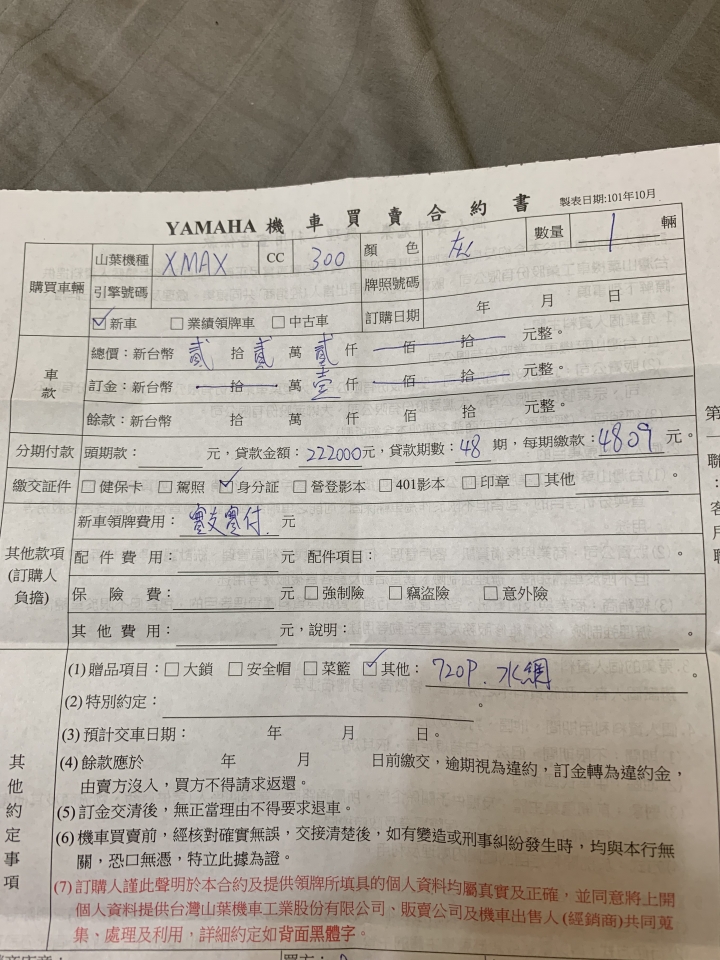 製表日期:101年10月
YAMAHA 機 車 買 賣 合 約 書
購買車輛 山葉機種 XMAX CC 300 顏 色 灰 數量 1 輛
引擎號碼 牌照號碼
☑新車 □業績領牌車 □中古車 訂購日期 年 月 日
車款 總價：新台幣 貳 拾 貳 萬 貳 仟 佰 拾 元整。
訂金：新台幣 拾 萬 壹 仟 佰 拾 元整。
餘款：新台幣 拾 萬 仟 佰 拾 元整。
分期付款 頭期款： 元，貸款金額：222000元，貸款期數：48 期，每期繳款：4809 元。
繳交証件 □健保卡 □駕照 ☑身分証 □營登影本 □401影本 □印章 □其他 。
其他款項(訂購人負擔) 新車領牌費用：實支實付. 元
配 件 費 用： 元 配件項目： 。
保 險 費： 元 □強制險 □竊盜險 □意外險
其 他 費 用： 元，說明： 。
其他約定事項 (1) 贈品項目：□大鎖 □安全帽 □菜籃 ☑其他：720P. 水網 。
(2) 特別約定： 。
(3) 預計交車日期： 年 月 日。
(4) 餘款應於 年 月 日前繳交，逾期視為違約，訂金轉為違約金，
由賣方沒入，買方不得請求返還。
(5) 訂金交清後，無正當理由不得要求退車。
(6) 機車買賣前，經核對確實無誤，交接清楚後，如有變造或刑事糾紛發生時，均與本行無
關，恐口無憑，特立此據為證。
(7) 訂購人謹此聲明於本合約及提供領牌所填具的個人資料均屬真實及正確，並同意將上開
個人資料提供台灣山葉機車工業股份有限公司、販賣公司及機車出售人(經銷商)共同蒐
集、處理及利用，詳細約定如背面黑體字。
第一聯：客戶聯